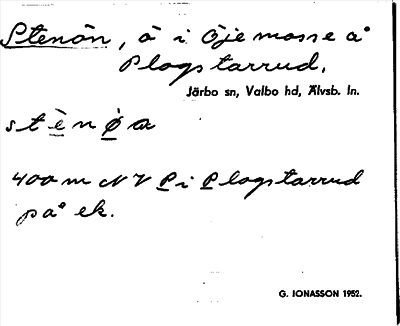 Stenön, ö i Öjemosse å
Plogstarrud.
Järbo sn, Valbo hd, Älvsb. ln.
stènøa
400 m NV P i Plogstarrud
på ek.
G. IONASSON 1952.